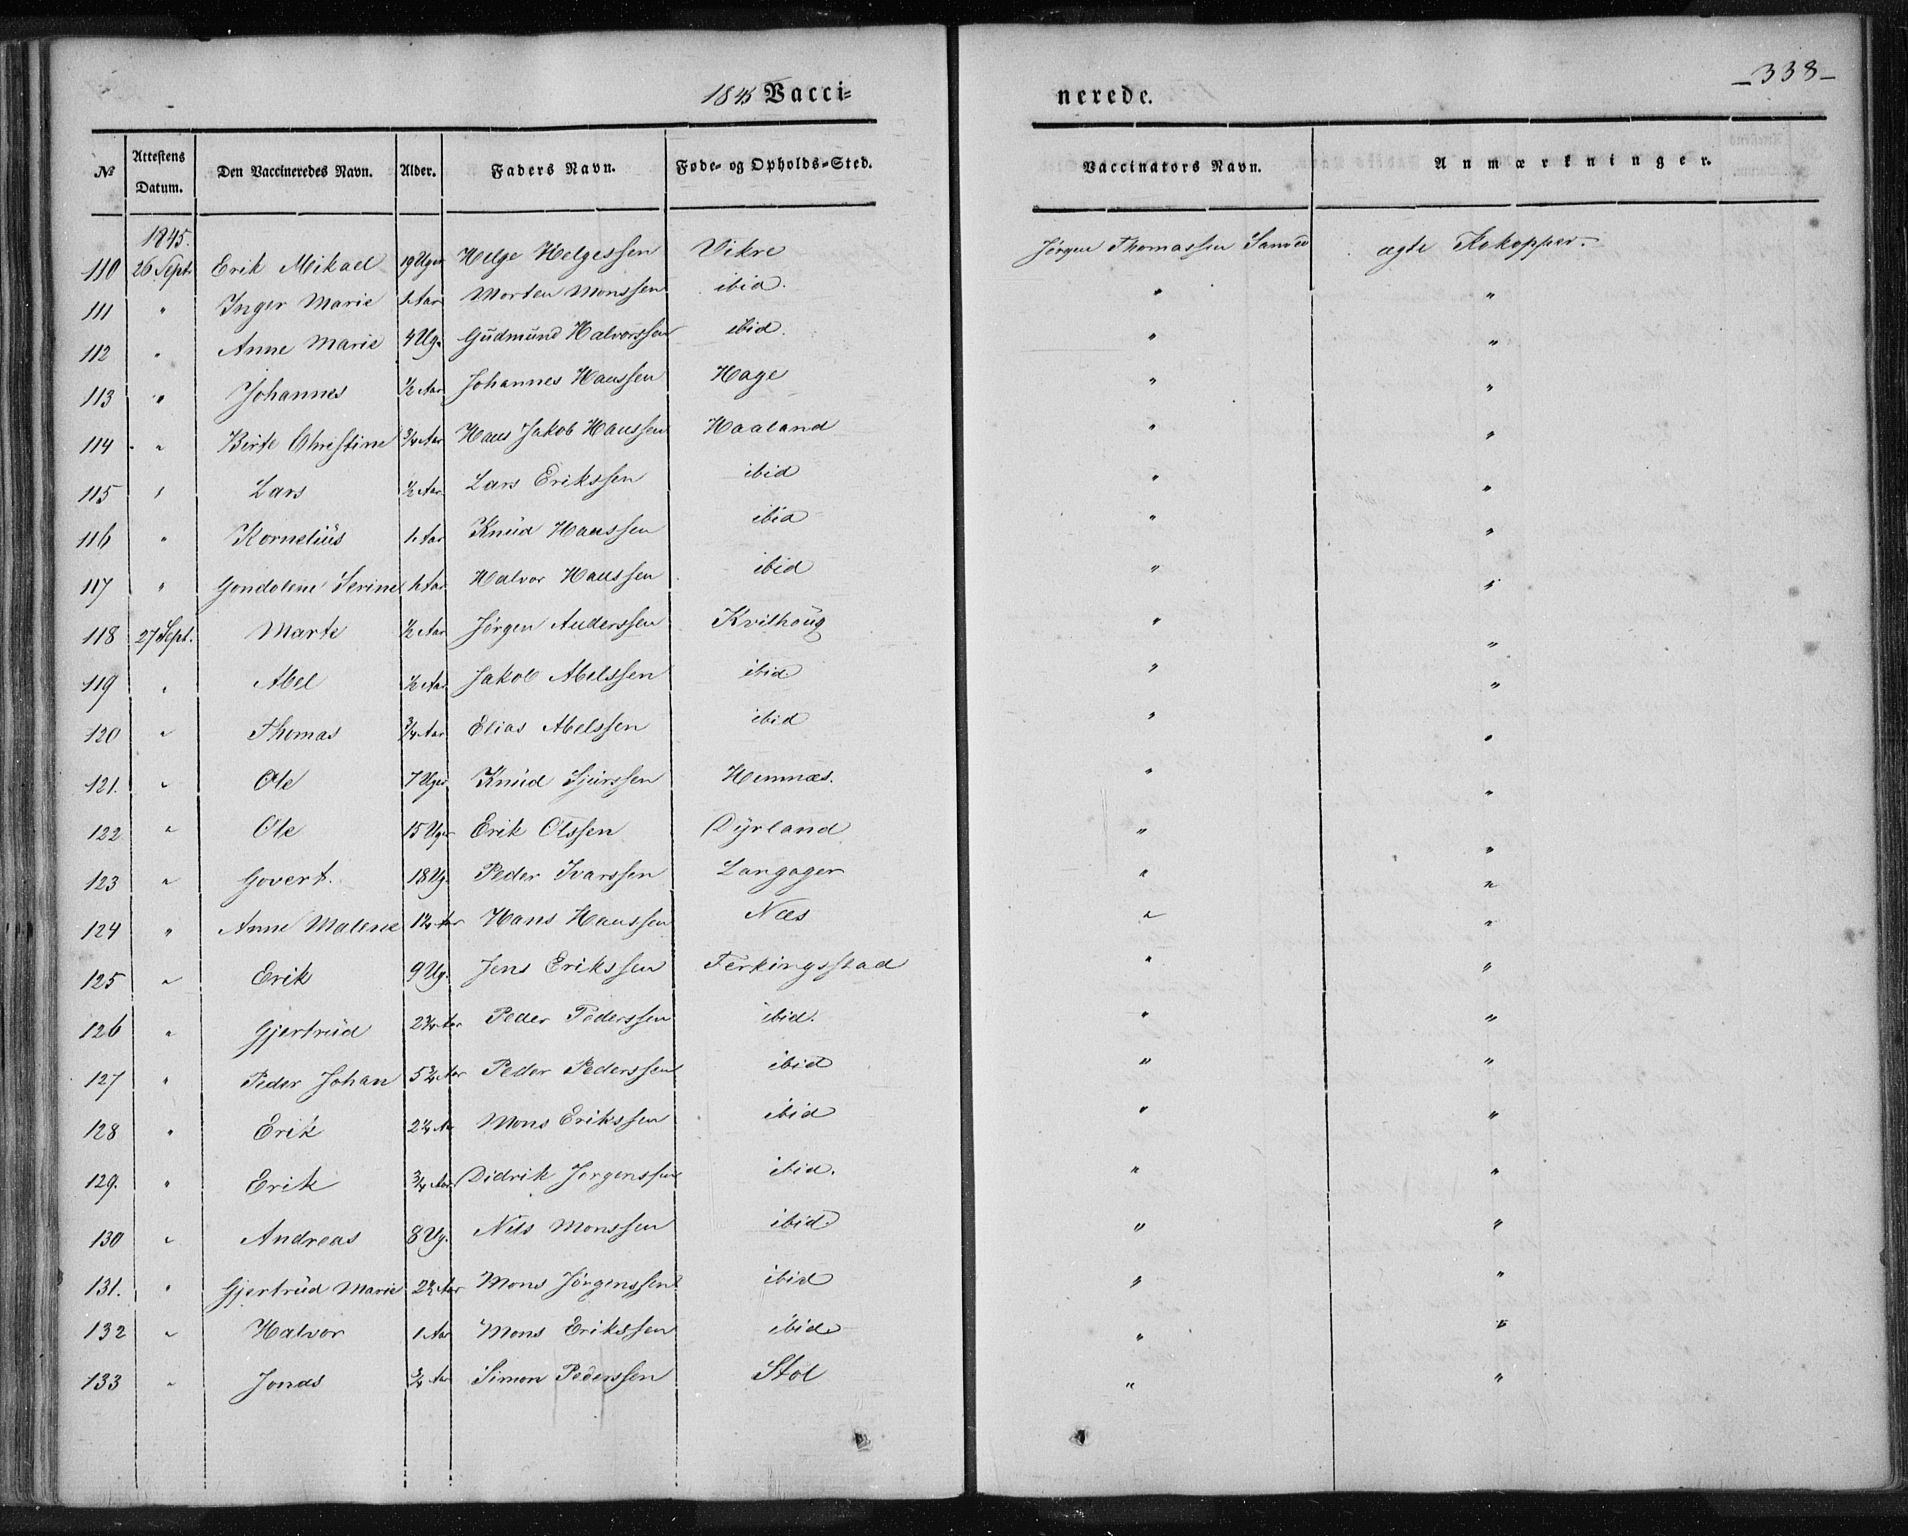 -338-
1845 Vacci= nerede.
№ Attestens Datum. Den Vaccineredes Navn. Alder. Faders Navn. Føde- og Opholds-Sted. Vaccinators Navn. Anmærkninger.
1845.
110 26 Sept. Erik Mikael 19 Uger Helge Helgessen Vikre Jørgen Thomassen Sanved ægte Kokopper.
111 " Inger Marie 1 Aar Morten Monssen ibid. " "
112 " Anne Marie 4 Ug. Gudmund Halvorssen ibid. " "
113 " Johannes ½ Aar Johannes Hanssen Hage " "
114 " Birte Christine ¾ Aar Hans Jakob Hanssen Haaland " "
115 " Lars ½ Aar Lars Erikssen ibid " "
116 " Kornelius 1 Aar Knud Hanssen ibid " "
117 " Gondolene Serine 1 Aar Halvor Hanssen ibid " "
118 27 Sept. Marte ½ Aar Jørgen Anderssen Kvithoug " "
119 " Abel ½ Aar Jakob Abelssen ibid " "
120 " Thomas ¾ Aar Elias Abelssen ibid " "
121. " Ole 7 Uger Knud Sjurssen Hemnæs. " "
122 " Ole 15 Uger Erik Olssen Dyrland " "
123 " Govert. 18 Ug. Peder Ivarssen Langager " "
124 " Anne Malene Aar Hans Hanssen Næs " "
125 " Erik 9 Ug. Jens Erikssen Ferkingsstad " "
126 " Gjertrud Aar Peder Pederssen ibid. " "
127 " Peder Johan Aar Peder Pederssen ibid " "
128 " Erik Aar Mons Erikssen ibid " "
129. " Erik ¾ Aar Didrik Jørgenssen ibid. " "
130 " Andreas 8 Ug. Nils Monssen ibid. " "
131. " Gjertrud Marie Aar Mons Jørgenssen ibid " "
132 " Halvor 1 Aar Mons Erikssen ibid " "
133 " Jonas ¾ Aar Simon Pederssen Stol " "